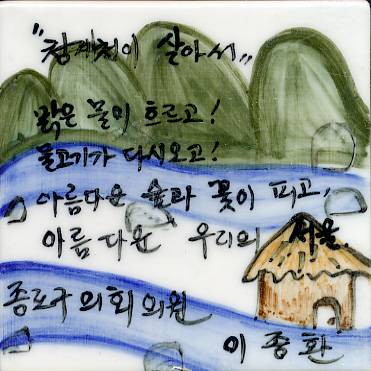 "청계천이 살아서"
맑은 물이 흐르고!
물고기가 다시오고!
아름다운 숲과 꽃이 피고,
아름다운 우리의 서울.
종로구의회의원
이종환